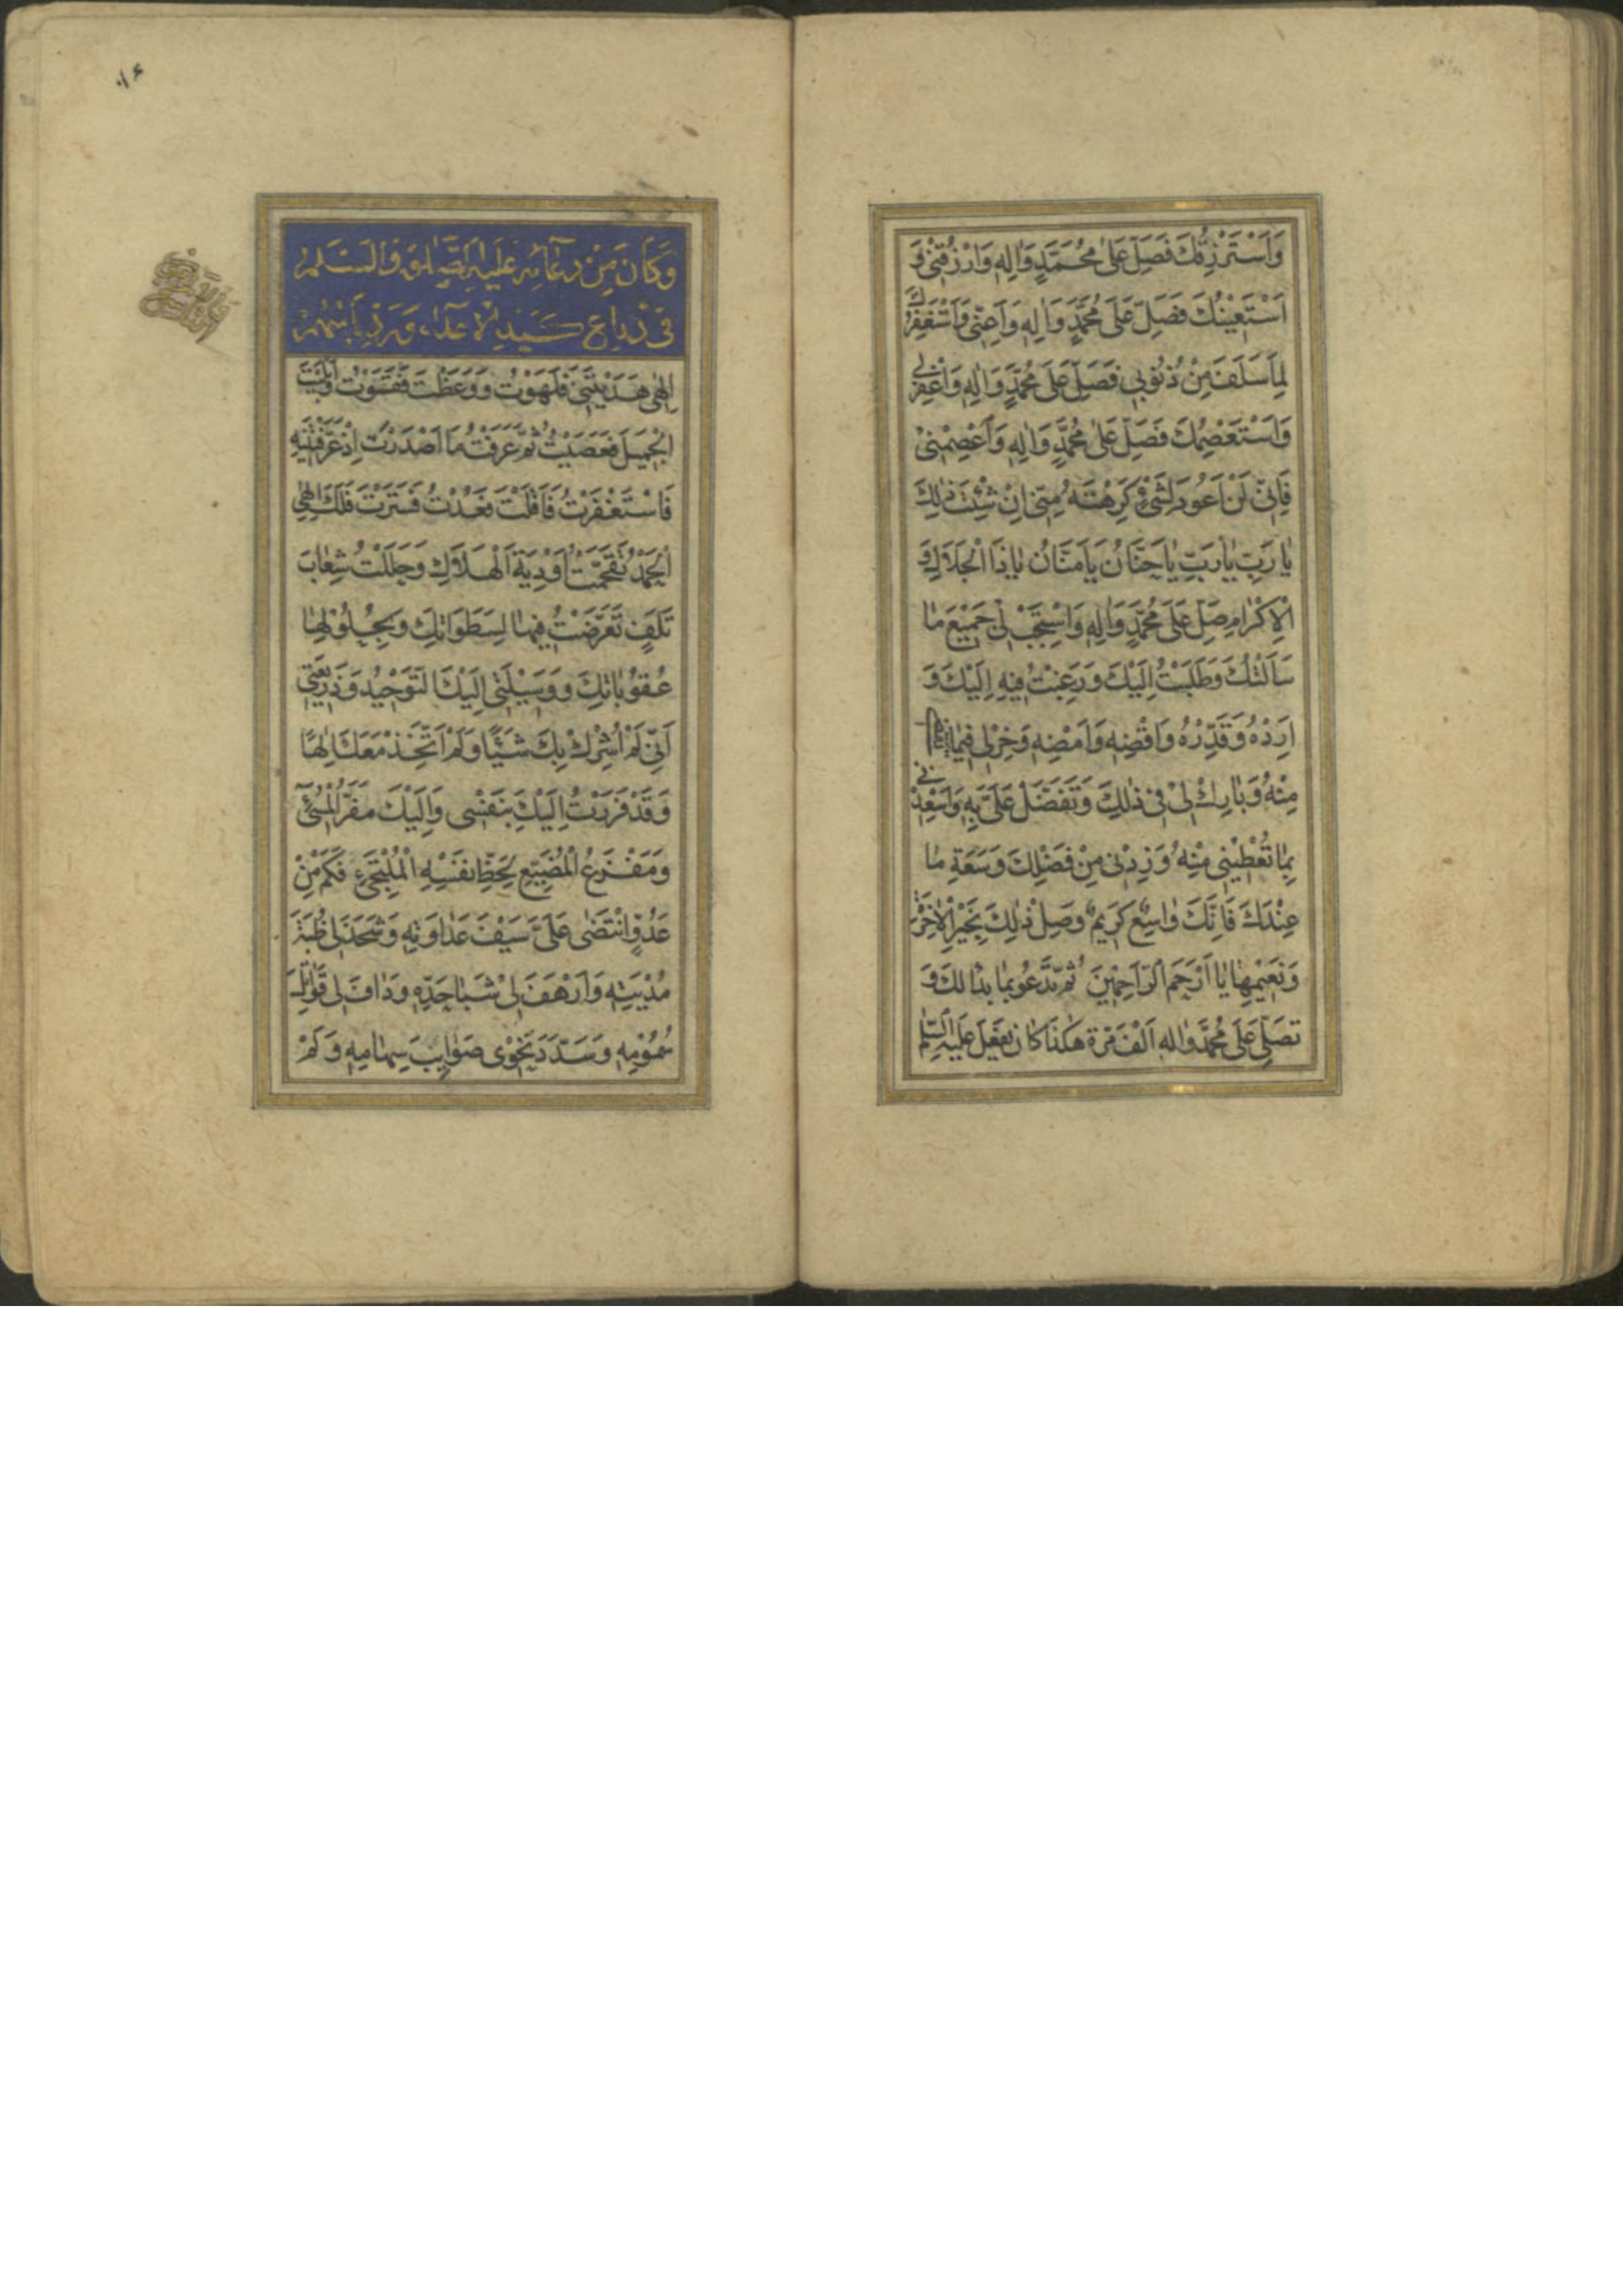 وَاَسْتَرْزِقُكَ فَصَلِّ عَلٰى مُحَمَّدٍ وَاٰلِهِ وَارْزُقْنِي وَ
اَسْتَعِينُكَ فَصَلِّ عَلٰى مُحَمَّدٍ وَاٰلِهِ وَاَعِنّى وَاَسْتَغْفِرُكَ
لِمٰا سَلَفَ مِنْ ذُنُوبِى فَصَلِّ عَلٰى مُحَمَّدٍ وَاٰلِهِ وَاغْفِرْلِى
وَاَسْتَعْصِمُكَ فَصَلِّ عَلٰى مُحَمَّدٍ وَاٰلِهِ وَاعْصِمْنِىْ
فَاِنّى لَنْ اَعُودَ لِشَىْءٍ كَرِهْتَهُ مِنّى اِنْ شِئْتَ ذٰلِكَ
يٰا رَبِّ يٰا رَبِّ يٰا حَنّٰانُ يٰا مَنّٰانُ يٰا ذَا الْجَلٰالِ وَ
الْاِكْرٰامِ صَلِّ عَلٰى مُحَمَّدٍ وَاٰلِهِ وَاسْتَجِبْ لِى جَمِيْعَ مٰا
سَاَلْتُكَ وَطَلَبْتُ اِلَيْكَ وَرَغِبْتُ فِيهِ اِلَيْكَ وَ
اَرِدْهُ وَقَدِّرْهُ وَاقْضِهِ وَاَمْضِهِ وَخِرْلِى فِيمٰا تَقْضِى
مِنْهُ وَبٰارِكْ لِىْ فِى ذٰلِكَ وَتَفَضَّلْ عَلَىَّ بِهِ وَاَسْعِدْنِى
بِمٰا تُعْطِيْنِى مِنْهُ وَزِدْنِى مِنْ فَضْلِكَ وَسَعَةِ مٰا
عِنْدَكَ فَاِنَّكَ وٰاسِعٌ كَرِيمٌ وَصِلْ ذٰلِكَ بِخَيْرِ الْاٰخِرَةِ
وَنَعِيْمِهٰا يٰا اَرْحَمَ الرّٰاحِمِيْنَ ثُمَّ تَدْعُو بِمٰا بَدٰا لَكَ وَ
تُصَلِّى عَلٰى مُحَمَّدٍ وَاٰلِهِ اَلْفَ مَرَّة هٰكَذٰا كٰانَ يَفْعَلُ عَلَيْهِ السَّلٰم
وَكَانَ مِنْ دُعَائِهِ عَلَيْهِ الصَّلٰوةُ وَالسَّلٰمُ
فِى دِفَاعِ كَيْدِ الْاَعْدَاءِ وَرَدِّ بَاْسِهِمْ
اِلٰهِى هَدَيْتَنِى فَلَهَوْتُ وَوَعَظْتَ فَقَسَوْتُ وَاَبْلَيْتَ
الْجَمِيْلَ فَعَصَيْتُ ثُمَّ عَرَفْتُ مٰا اَصْدَرْتَ اِذْ عَرَّفْتَنِيْهِ
فَاسْتَغْفَرْتُ فَاَقَلْتَ فَعُدْتُ فَسَتَرْتَ فَلَكَ اِلٰهِى
الْحَمْدُ تَقَحَّمْتُ اَوْدِيَةَ الْهَلٰاكِ وَحَلَلْتُ شِعٰابَ
تَلَفٍ تَعَرَّضْتُ فِيهٰا لِسَطَوٰاتِكَ وَبِحُلُوْلِهٰا
عُقُوبٰاتِكَ وَوَسِيْلَتِى اِلَيْكَ التَّوْحِيْدُ وَذَرِيْعَتِى
اَنّى لَمْ اُشْرِكْ بِكَ شَيْئًا وَلَمْ اَتَّخِذْ مَعَكَ اِلٰهًا
وَقَدْ فَرَرْتُ اِلَيْكَ بِنَفْسِى وَاِلَيْكَ مَفَرُّ الْمُسِىْءِ
وَمَفْزَعُ الْمُضَيِّعِ لِحَظِّ نَفْسِهِ الْمُلْتَجِىءِ فَكَمْ مِنْ
عَدُوٍّ انْتَضٰى عَلَىَّ سَيْفَ عَدٰاوَتِهِ وَشَحَذَ لِى ظُبَةَ
مُدْيَتِهِ وَاَرْهَفَ لِىْ شَبٰا حَدِّهِ وَدٰافَ لِى قَوٰاتِلَ
سُمُوْمِهِ وَسَدَّدَ نَحْوِى صَوٰايِبَ سِهٰامِهِ وَلَمْ